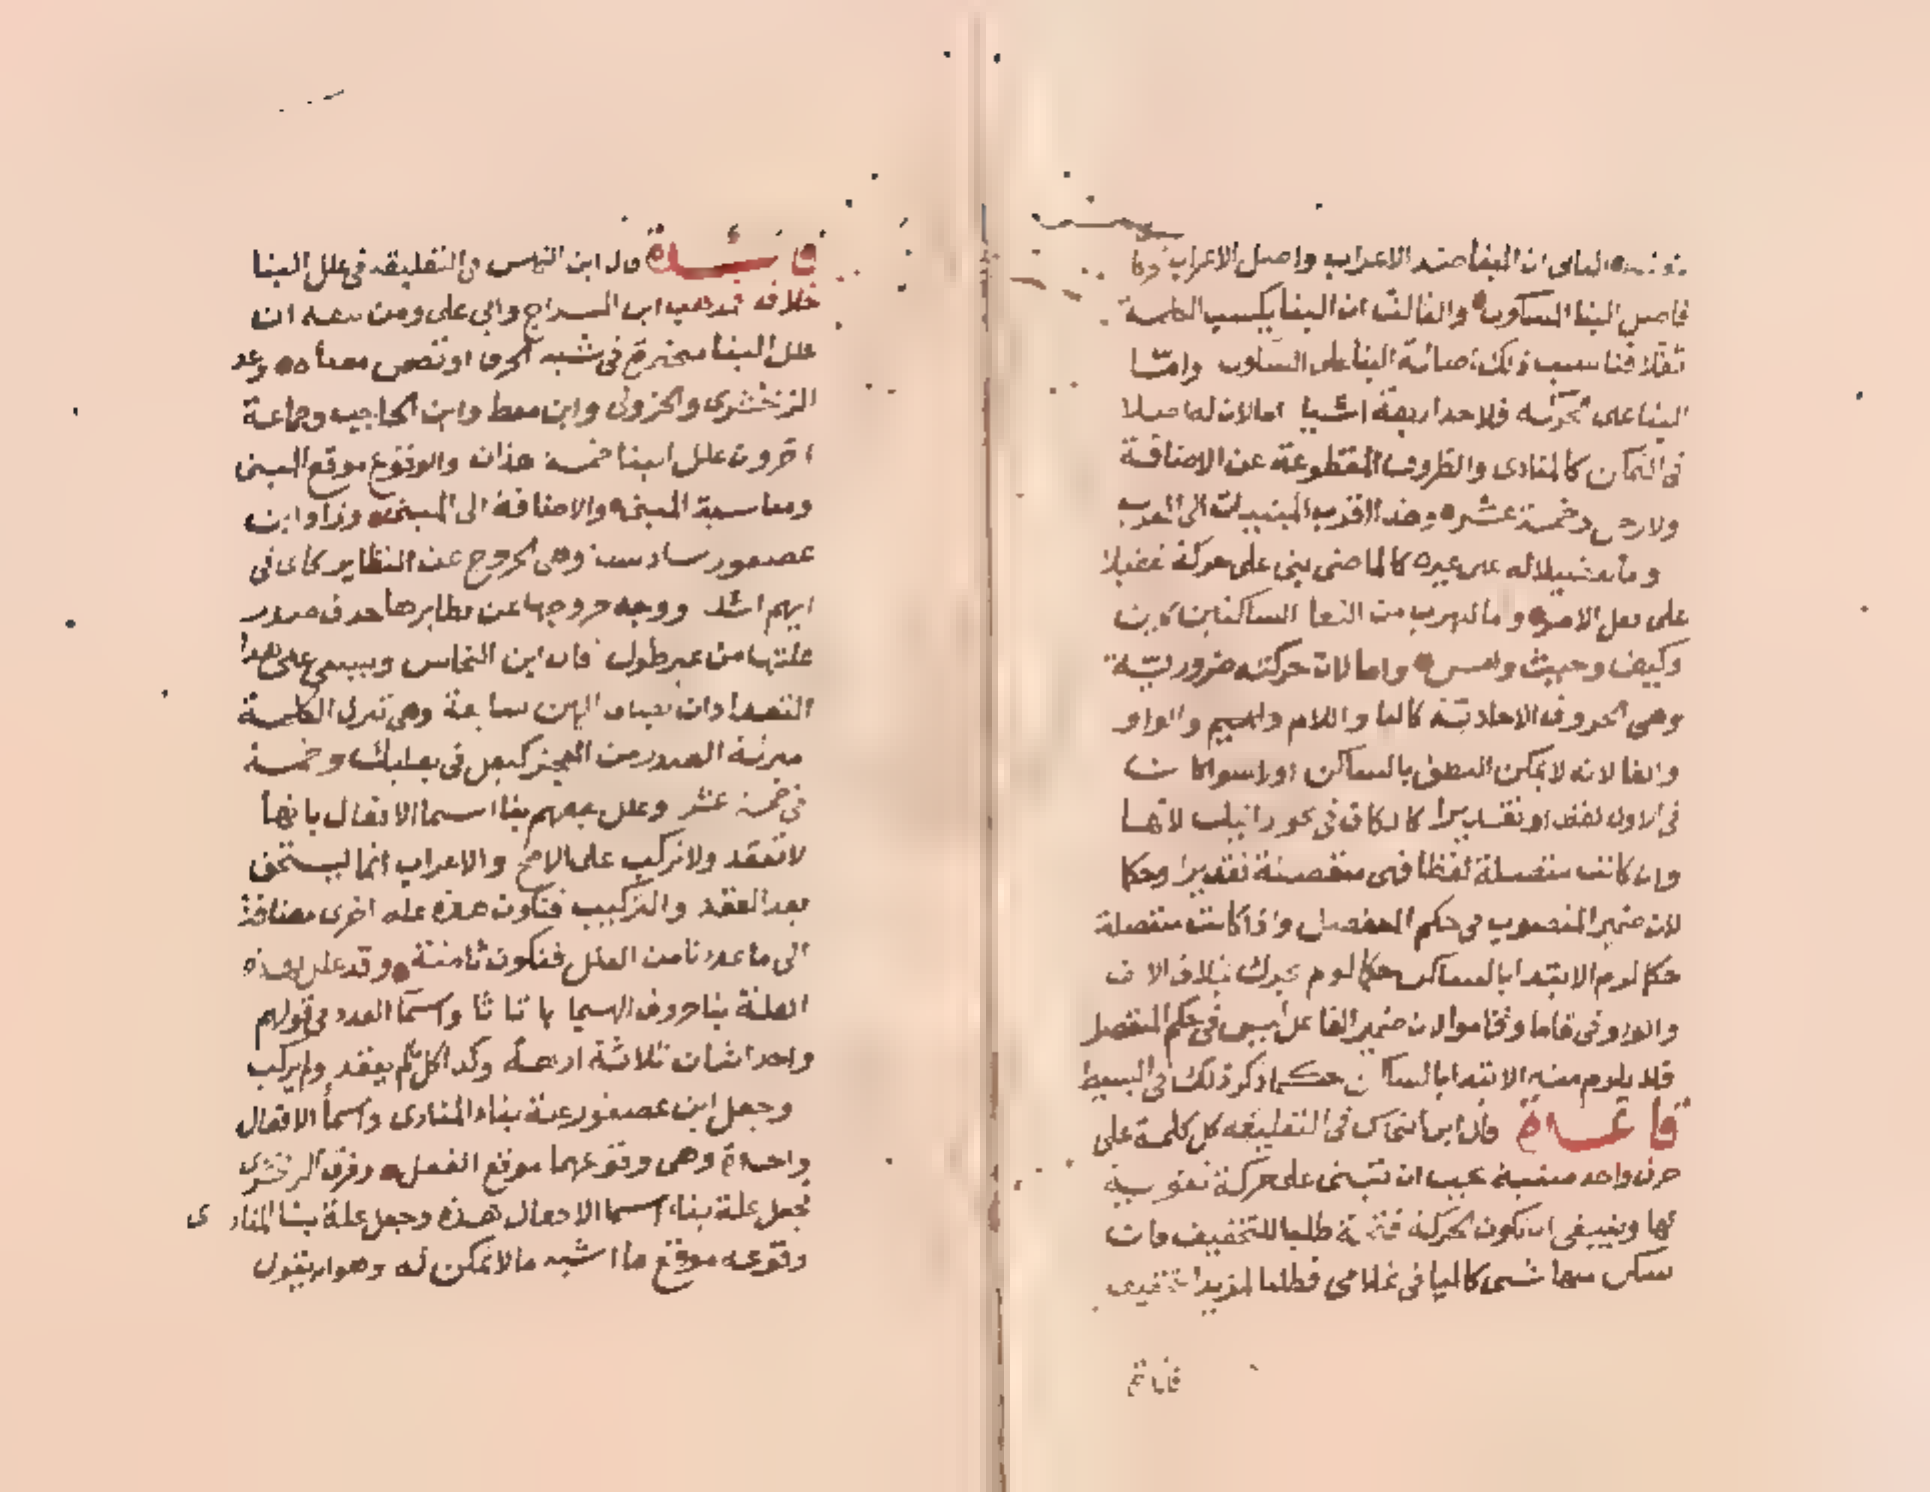 الثانى ان البنا ضد الاعراب واصل الاعراب
فاصل البنا السكون والثالث ان البنا يكسب الكلمة
ثقلا فناسب ذلك اصالة البنا على السكون وامّا
البنا على حركة فلاحد اربعة اشيا اما لان له اصلا
فى التمكن كالمنادى والظروف المقطوعة عن الاضافة
ولارجل وخمسة عشر وهذا اقرب المبنيات الى المعرب
واما تفضيلا له على غيره كالماضى بنى على حركة تفضيلا
على فعل الامر واما للهرب من التقا الساكنين كاين
وكيف وحيث وامس واما لان حركته ضروريّة
وهى الحروف الاحاديّة كالبا واللام والميم والواو
والفا لانه لا يمكن النطق بالساكن اولا سوا كانت
فى الاول لفظا او تقديرا كالكاف فى نحو رايتك لانها
وان كانت متصلة لفظا فهى منفصلة تقديرا وحكما
لان ضمير المنصوب فى حكم المنفصل واذا كانت منفصلة
حكما لزم الابتدا بالساكن حكما لو لم يحرك بخلاف الالف
والواو فى قاما وقاموا لان ضمير الفاعل ليس فى حكم المنفصل
فلا يلزم منه الابتدا بالساكن حكما ذكر ذلك فى البسيط
قاعدة قال ابن النحاس فى التعليقه كل كلمة على
حرف واحد مبنية يجب ان تبنى على حركة تقوية
لها وينبغى ان تكون الحركة فتحة طلبا للتخفيف فان
سكن منها شى كاليا فى غلامى فطلبا لمزيد التخفيف
فائدة قال ابن النحاس فى التعليقه فى علل البنا
خلاف فمذهب ابن السراج وابي على ومن تبعه ان
علل البنا منحصرة فى شبه الحرف او تضمن معناه وعد
الزمخشرى والجزولى وابن معط وابن الحاجب وجماعة
اخرون علل البنا خمسة هذان والوقوع موقع المبنى
ومناسبة المبنى والاضافة الى المبنى وزاد ابن
عصفور سادسة وهى الخروج عن النظاير كاى فى
ايهم اشد ووجه خروجها عن نظايرها حذف صدر
صلتها من غير طول قال ابن النحاس وينبغى على هذا
التعداد ان يضاف اليهن سابعة وهى تنزل الكلمة
منزلة الصدر من العجز كبعل فى بعلبك وخمسة
فى خمسة عشر وعلل بعضهم بنا اسما الافعال بانها
لا تعقد ولا تركب على الاصح والاعراب انما يستحق
بعد العقد والتركيب فتكون هذه علة اخرى مضافة
الى ما عددنا من العلل فتكون ثامنة وقد علل بهذه
العلة بنا حروف الهجا با تا ثا واسما العدد فى قولهم
واحد اثنان ثلاثة اربعة وكذا كل ما لم يعقد ولم يركب
وجعل ابن عصفور علة بناء المنادى واسما الافعال
واحدة وهى وقوعهما موقع الفعل وفرق الزمخشرى
فجعل علة بناء اسما الافعال هذه وجعل علة بنا المنادى
وقوعه موقع ما اشبه ما لا تمكن له وهو ان يقول